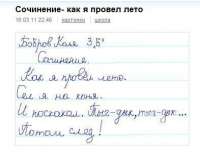 Сочинение- как я провел лето
16.03.11 22:46 картинки школа
Бобров Коля 3 "Б"
Сочинение.
Как я провел лето.
Сел я на коня.
И поскакал. Тыг-дык, тыг-дык...
Потом слез!